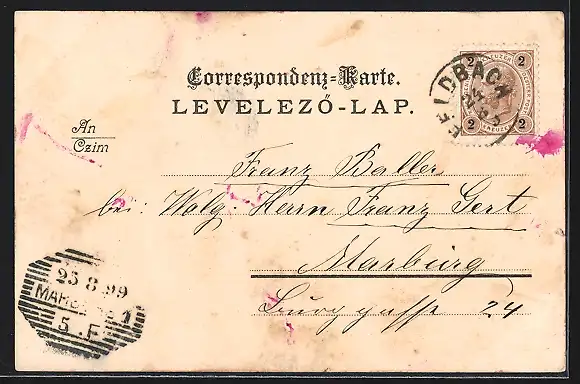 Correspondenz-Karte.
LEVELEZŐ-LAP.
2 KREUZER 2
2 KREUZER 2
FELDBACH
25
An
Czim
Franz Baller
bei: Wolg. Herrn Franz Gert
Marburg
24
25 8 99
MARB 1
5.F